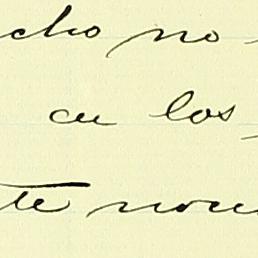 cho no
en los
te nom